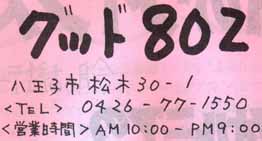 グッド802
八王子市松木30-1
<TEL> 0426-77-1550
<営業時間> AM10:00-PM9:00